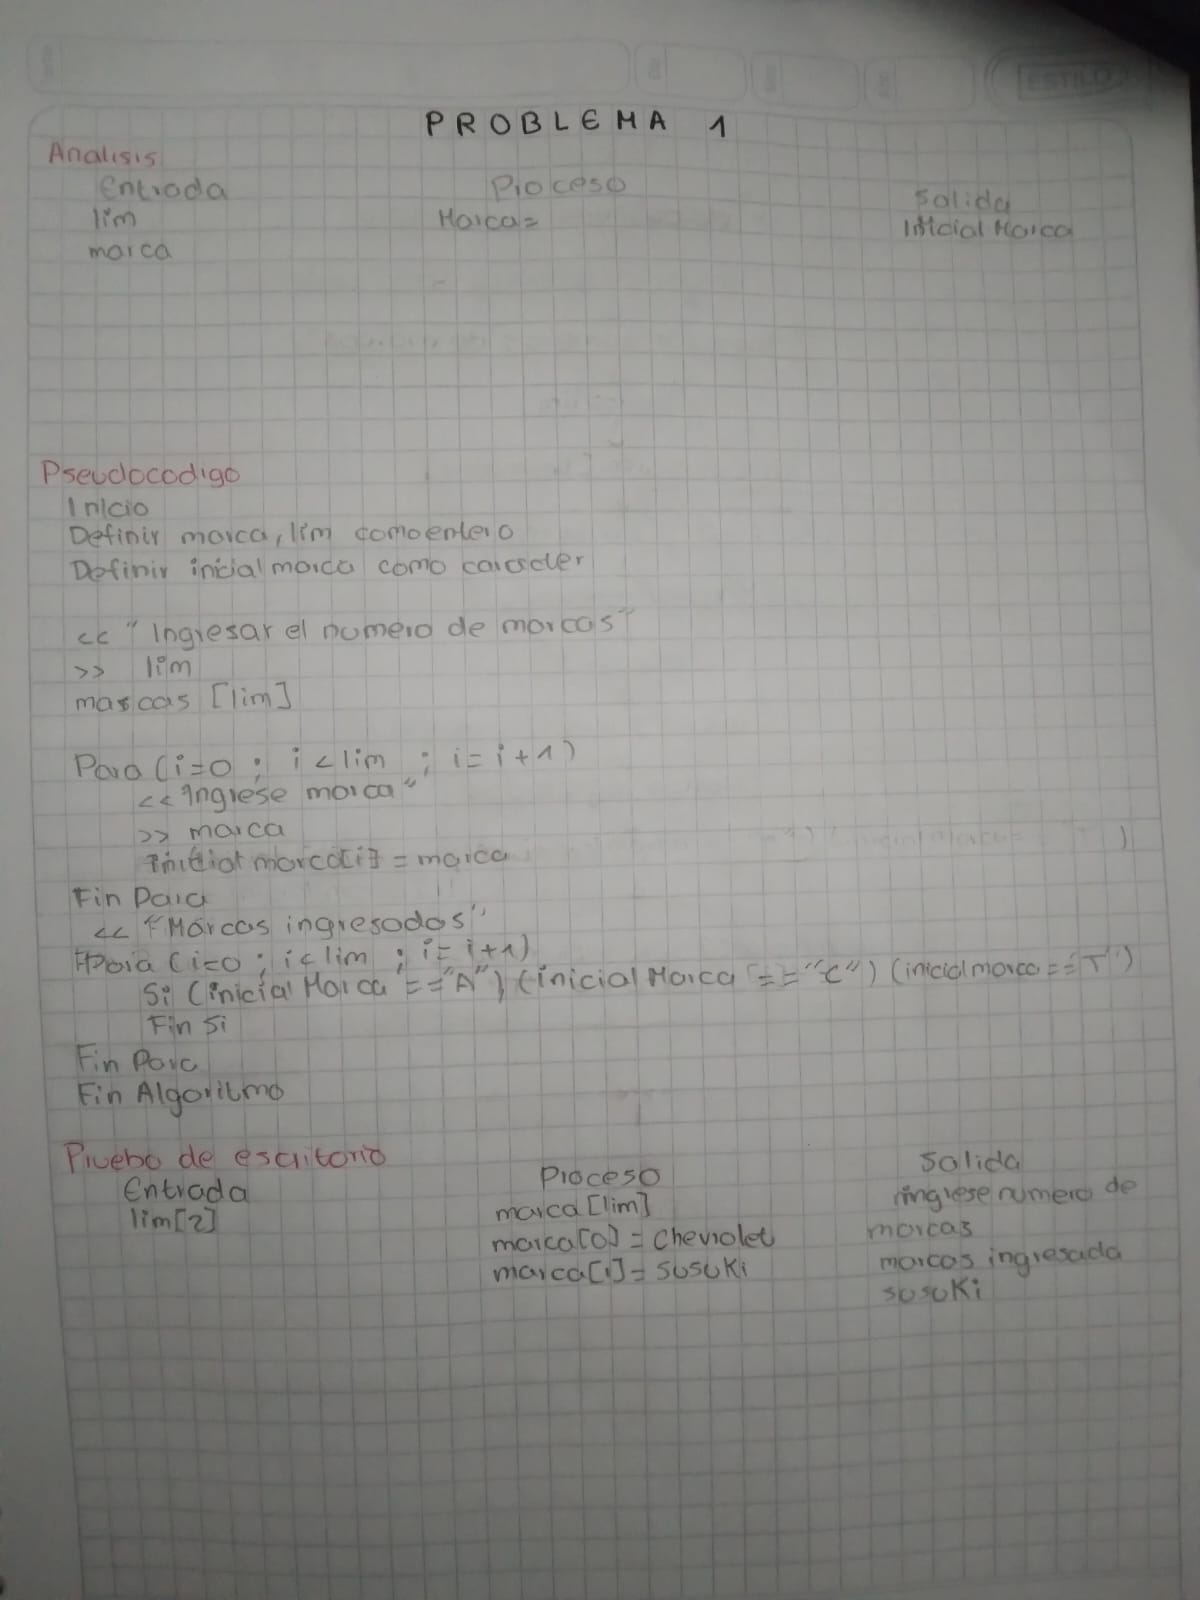 ESTILO
PROBLEMA 1
Analisis
Entrada Proceso Salida
lim Marca= Inicial Marca
marca
Pseudocodigo
Inicio
Definir marca, lim como entero
Definir inicial marca como caracter
<< "Ingresar el numero de marcas"
>> lim
marcas [lim]
Para (i=0 ; i < lim ; i= i+1)
<< Ingrese marca"
>> marca
Inicial marca[i] = marca
Fin Para
<< "Marcas ingresadas"
Para (i=0 ; i< lim ; i= i+1)
Si (inicial Marca =="A") (inicial Marca =="C") (inicial marca =="T")
Fin Si
Fin Para
Fin Algoritmo
Prueba de escritorio
Entrada Proceso Salida
lim[2] marca [lim] ingrese numero de
marca[0] = Chevrolet marcas
marca[1]= Susuki marcas ingresada
susuki